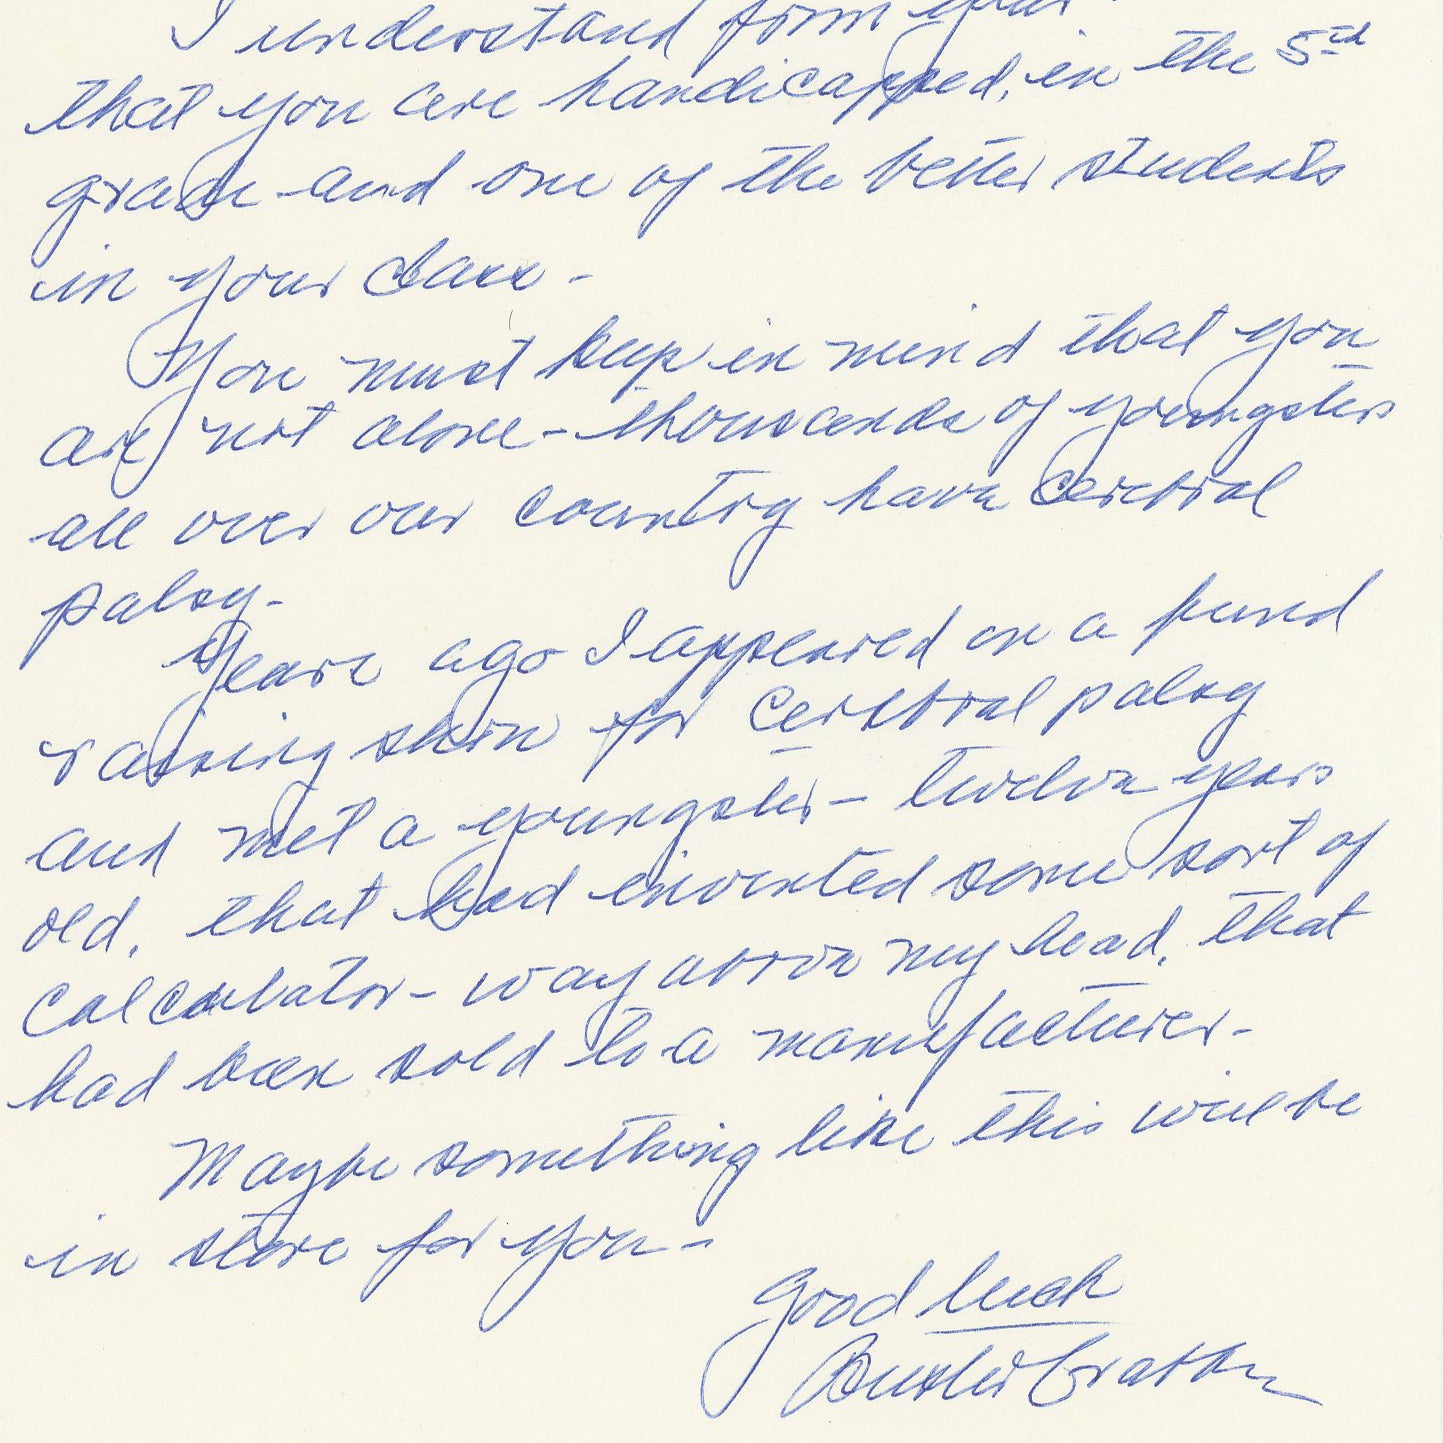 I understand form your
that you are handicapped, in the 5th
grade and one of the better students
in your class -
You must keep in mind that you
are not alone - thousands of youngsters
all over our country have cerebral
palsy -
Years ago I appeared on a fund
raising show for cerebral palsy
and met a youngster - twelve years
old, that had invented some sort of
calculator - way above my head, that
had been sold to a manufacturer -
Maybe something like this will be
in store for you -
Good luck
Buster Crabbe